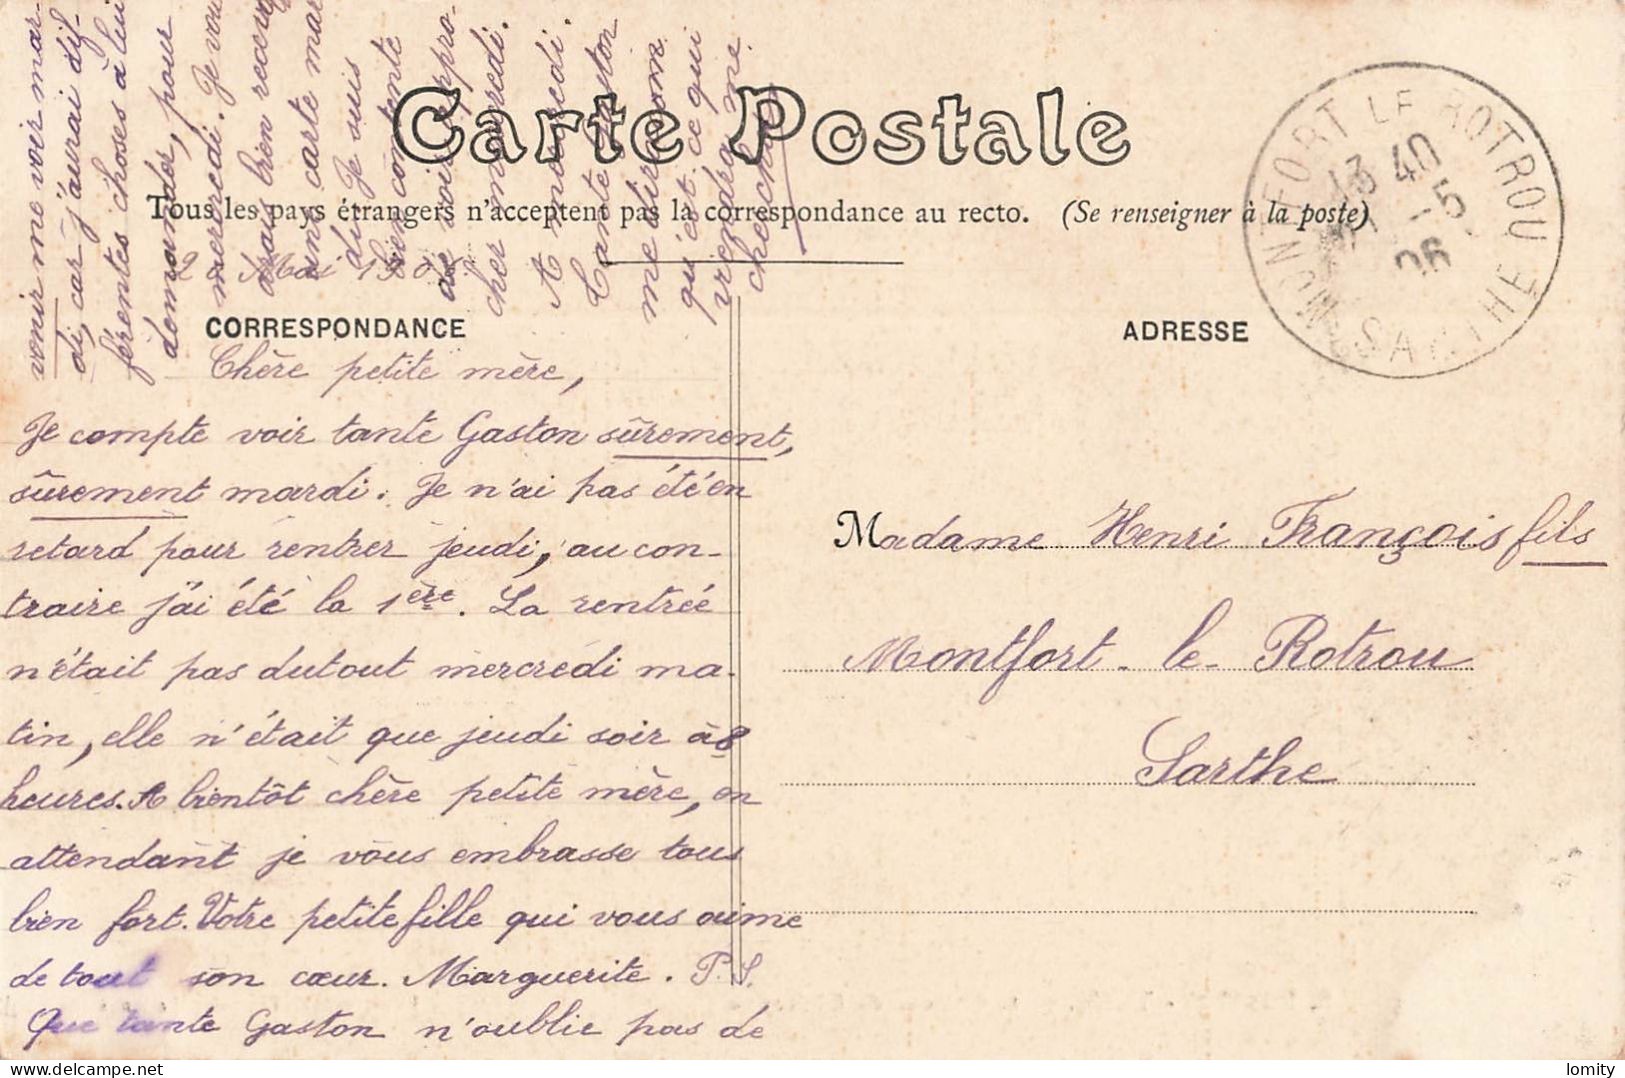 Carte Postale
Tous les pays étrangers n'acceptent pas la correspondance au recto. (Se renseigner à la poste)
CORRESPONDANCE
ADRESSE
MONTFORT LE ROTROU
SARTHE
13 40
-5
06
Mai
Chère petite mère,
Je compte voir tante Gaston sûrement,
sûrement mardi. Je n'ai pas été en
retard pour rentrer jeudi, au con-
traire j'ai été la 1ère. La rentrée
n'était pas dutout mercredi ma-
tin, elle n'était que jeudi soir à 8
heures. A bientôt chère petite mère, en
attendant je vous embrasse tous
bien fort. Votre petite fille qui vous aime
de tout son cœur. Marguerite. P.S.
Que tante Gaston n'oublie pas de
venir me voir mar-
di, car j'aurai dif-
férentes choses à lui
demander, pour
mercredi. Je vou
drais bien recevo
une carte mar
di. Je suis
bien contente
de voir appro-
cher mercredi.
A mercredi.
Tante Gaston
me dira
qui est ce qui
viendra me
chercher
Madame Henri François fils
Montfort-le-Rotrou
Sarthe
lomity